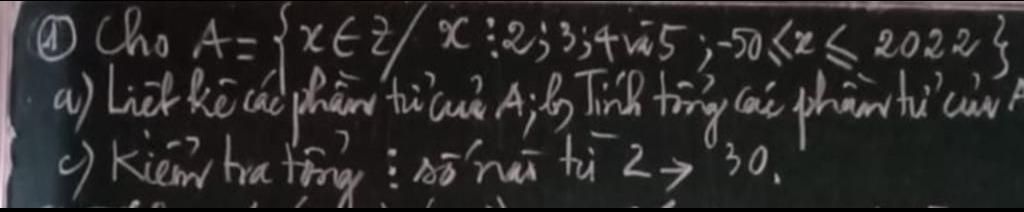 ① Cho A = { x ∈ Z / x ⋮ 2; 3; 4 và 5 ; -50 ≤ x ≤ 2022 }
a) Liệt kê các phần tử của A; b) Tính tổng các phần tử của A
c) Kiểm tra tổng ⋮ số nào từ 2 → 30.